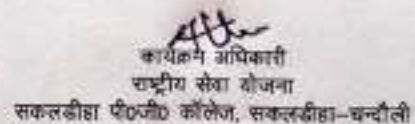 कार्यक्रम अधिकारी
राष्ट्रीय सेवा योजना
सकलडीहा पी0जी0 कॉलेज, सकलडीहा–चन्दौली